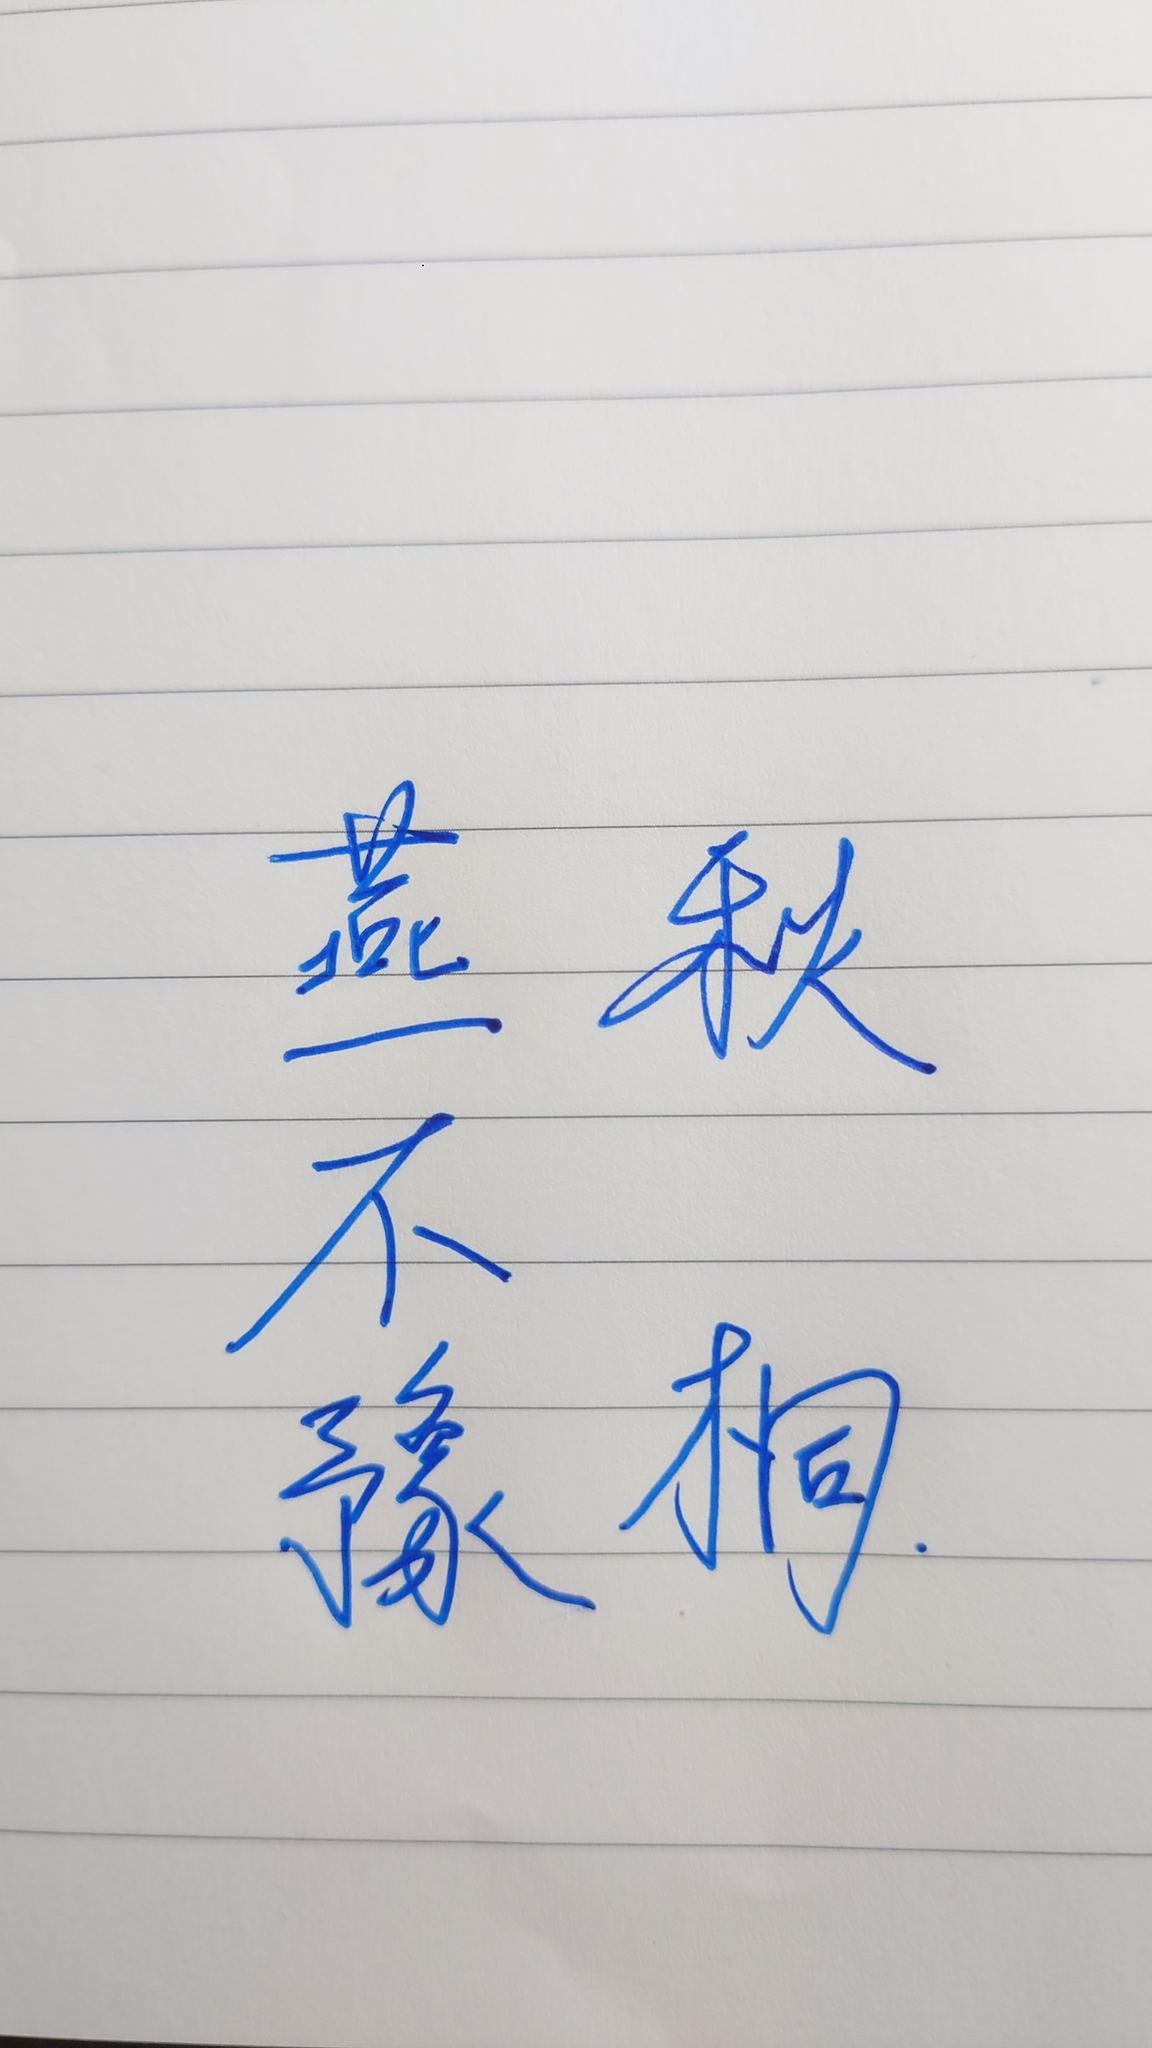 燕不豫
秋桐.